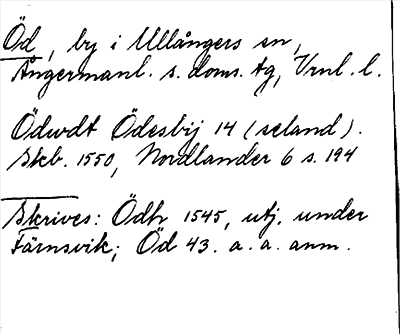 Öd, by i Ullångers sn,
Ångermanl. s. doms. tg, Vrnl. l.
Ödwdt Ödesbij 14 (seland).
Skb. 1550, Nordlander 6 s. 194
Skrives: Ödh 1545, utj. under
Färnsvik; Öd 43. a. a. anm.